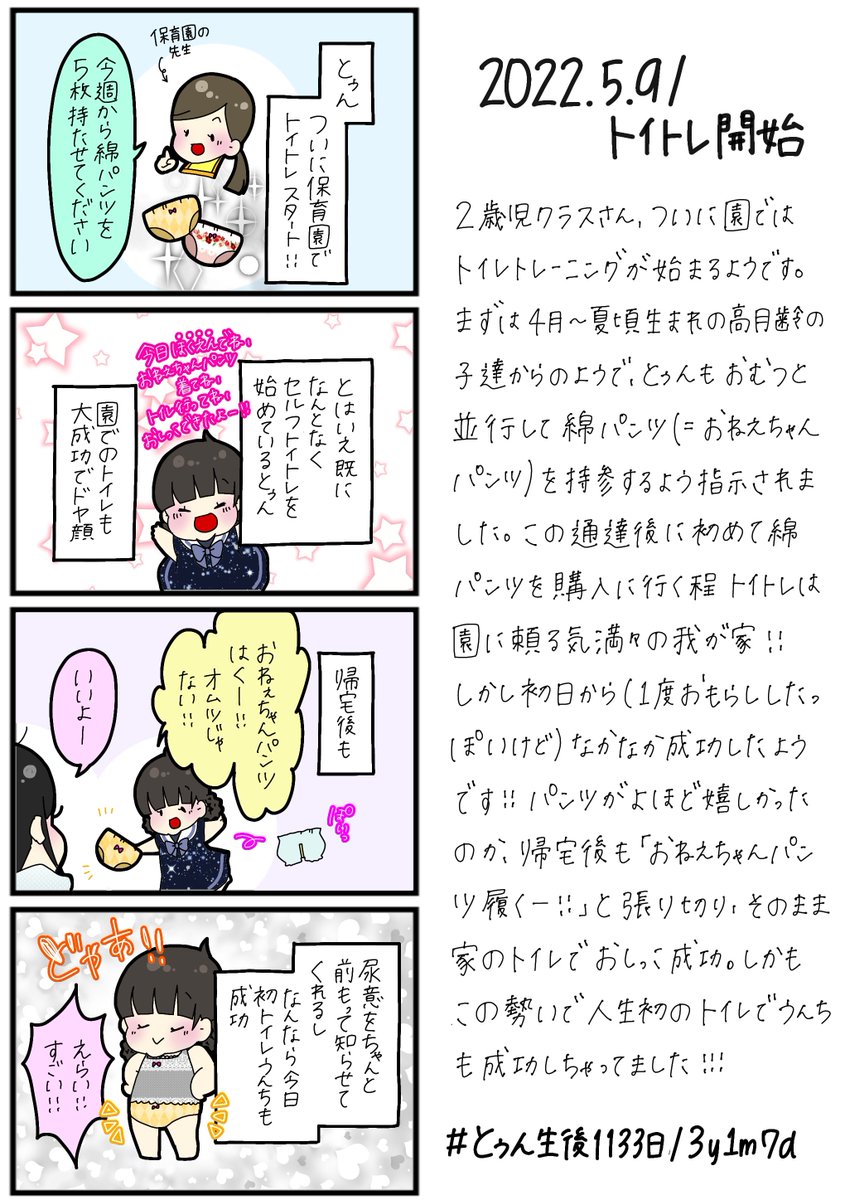 保育園の
先生
とぅん
ついに保育園で
トイトレスタート!!
今週から綿パンツを
5枚持たせてください
とはいえ既に
なんとなく
セルフトイトレを
始めているとぅん
今日ほくえんでね、
おねえちゃんパンツ
着てね、
トイレ行ってね、
おしっこできたよー!!
園でのトイレも
大成功でドヤ顔
帰宅後も
おねぇちゃんパンツ
はくー!!
オムツじゃ
ない!!
いいよー
ぽいっ
尿意をちゃんと
前もって知らせて
くれるし
なんなら今日
初トイレうんちも
成功
どやあ!!
えらい!!
すごい!!
2022.5.9/
トイトレ開始
2歳児クラスさん、ついに園では
トイレトレーニングが始まるようです。
まずは4月～夏頃生まれの高月齢の
子達からのようで、とぅんもおむつと
並行して綿パンツ(=おねえちゃん
パンツ)を持参するよう指示されま
した。この通達後に初めて綿
パンツを購入に行く程トイトレは
園に頼る気満々の我が家!!
しかし初日から(1度おもらししたっ
ぽいけど)なかなか成功したよう
です!!パンツがよほど嬉しかった
のか、帰宅後も「おねえちゃんパン
ツ履くー!!」と張り切り、そのまま
家のトイレでおしっこ成功。しかも
この勢いで人生初のトイレでうんち
も成功しちゃってました!!!
#とぅん生後1133日/3y1m7d